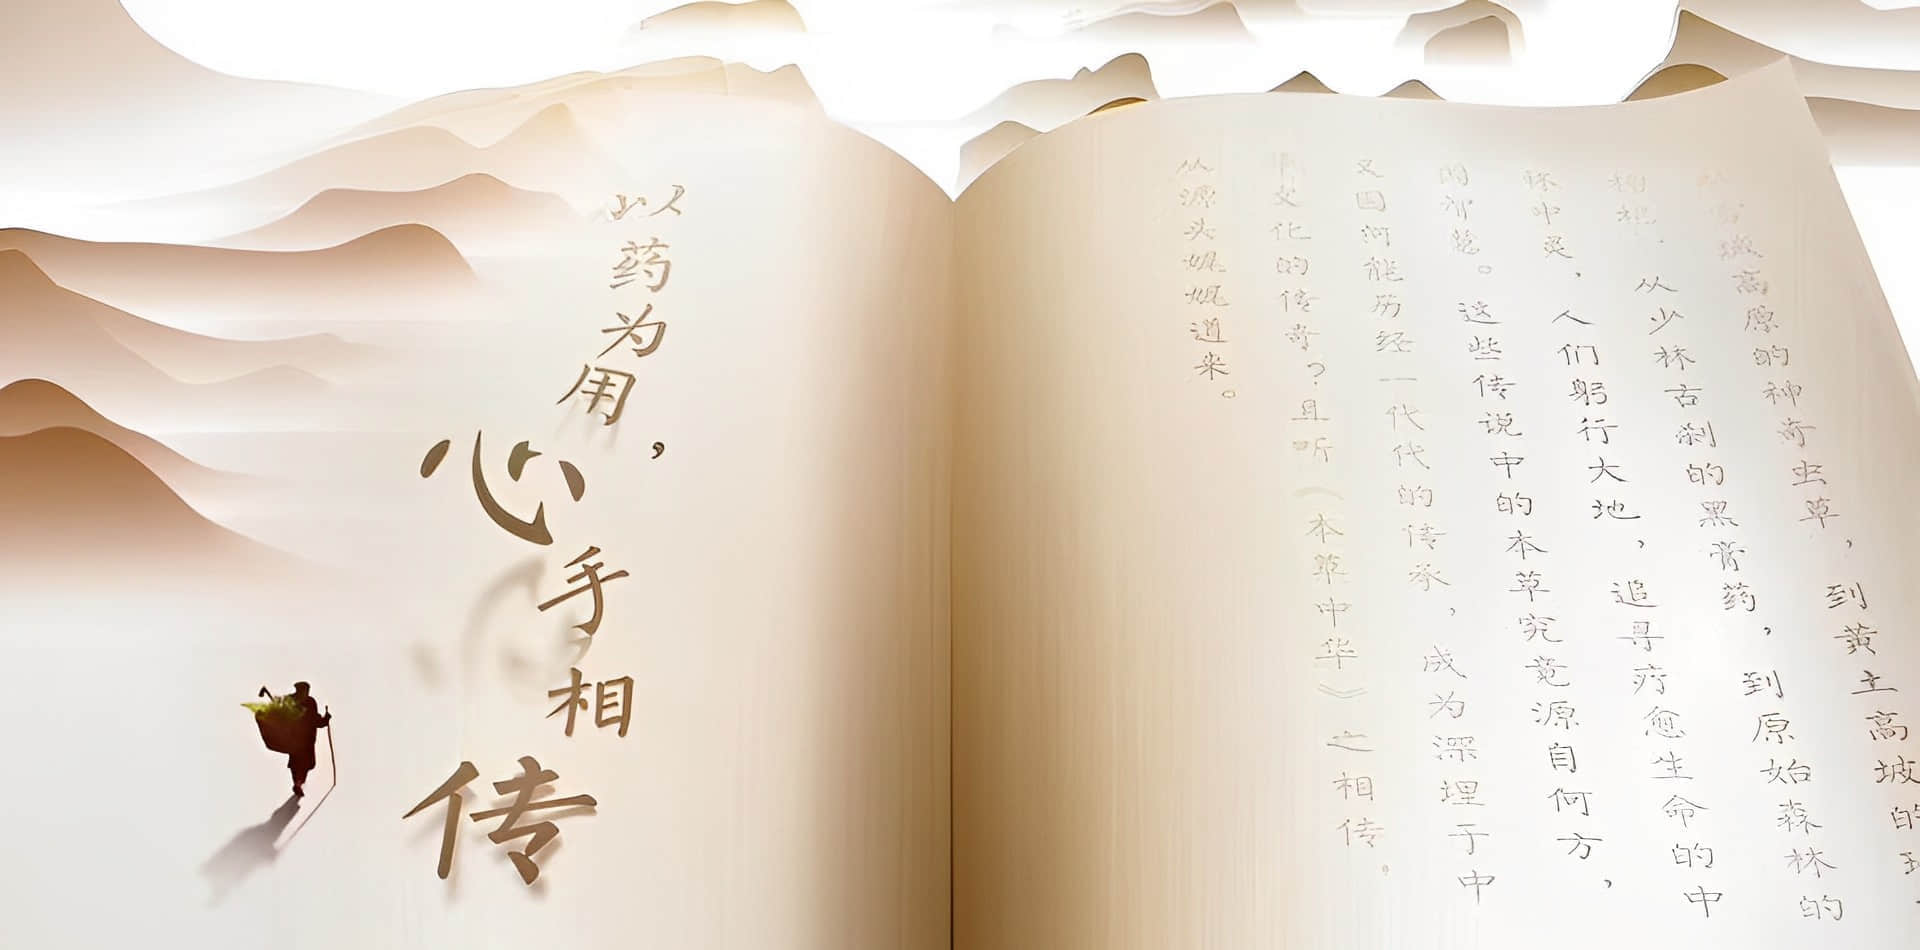 以药为用，
心手相传
从雪域高原的神奇虫草，到黄土高坡的
杞、从少林古刹的黑膏药，到原始森林的
林中灵，人们躬行大地，追寻疗愈生命的中
的。这些传说中的本草究竟源自何方，
又因何能历经一代代的传承，成为深埋于中
文化的传奇？且听《本草中华》之相传。
从源头娓娓道来。